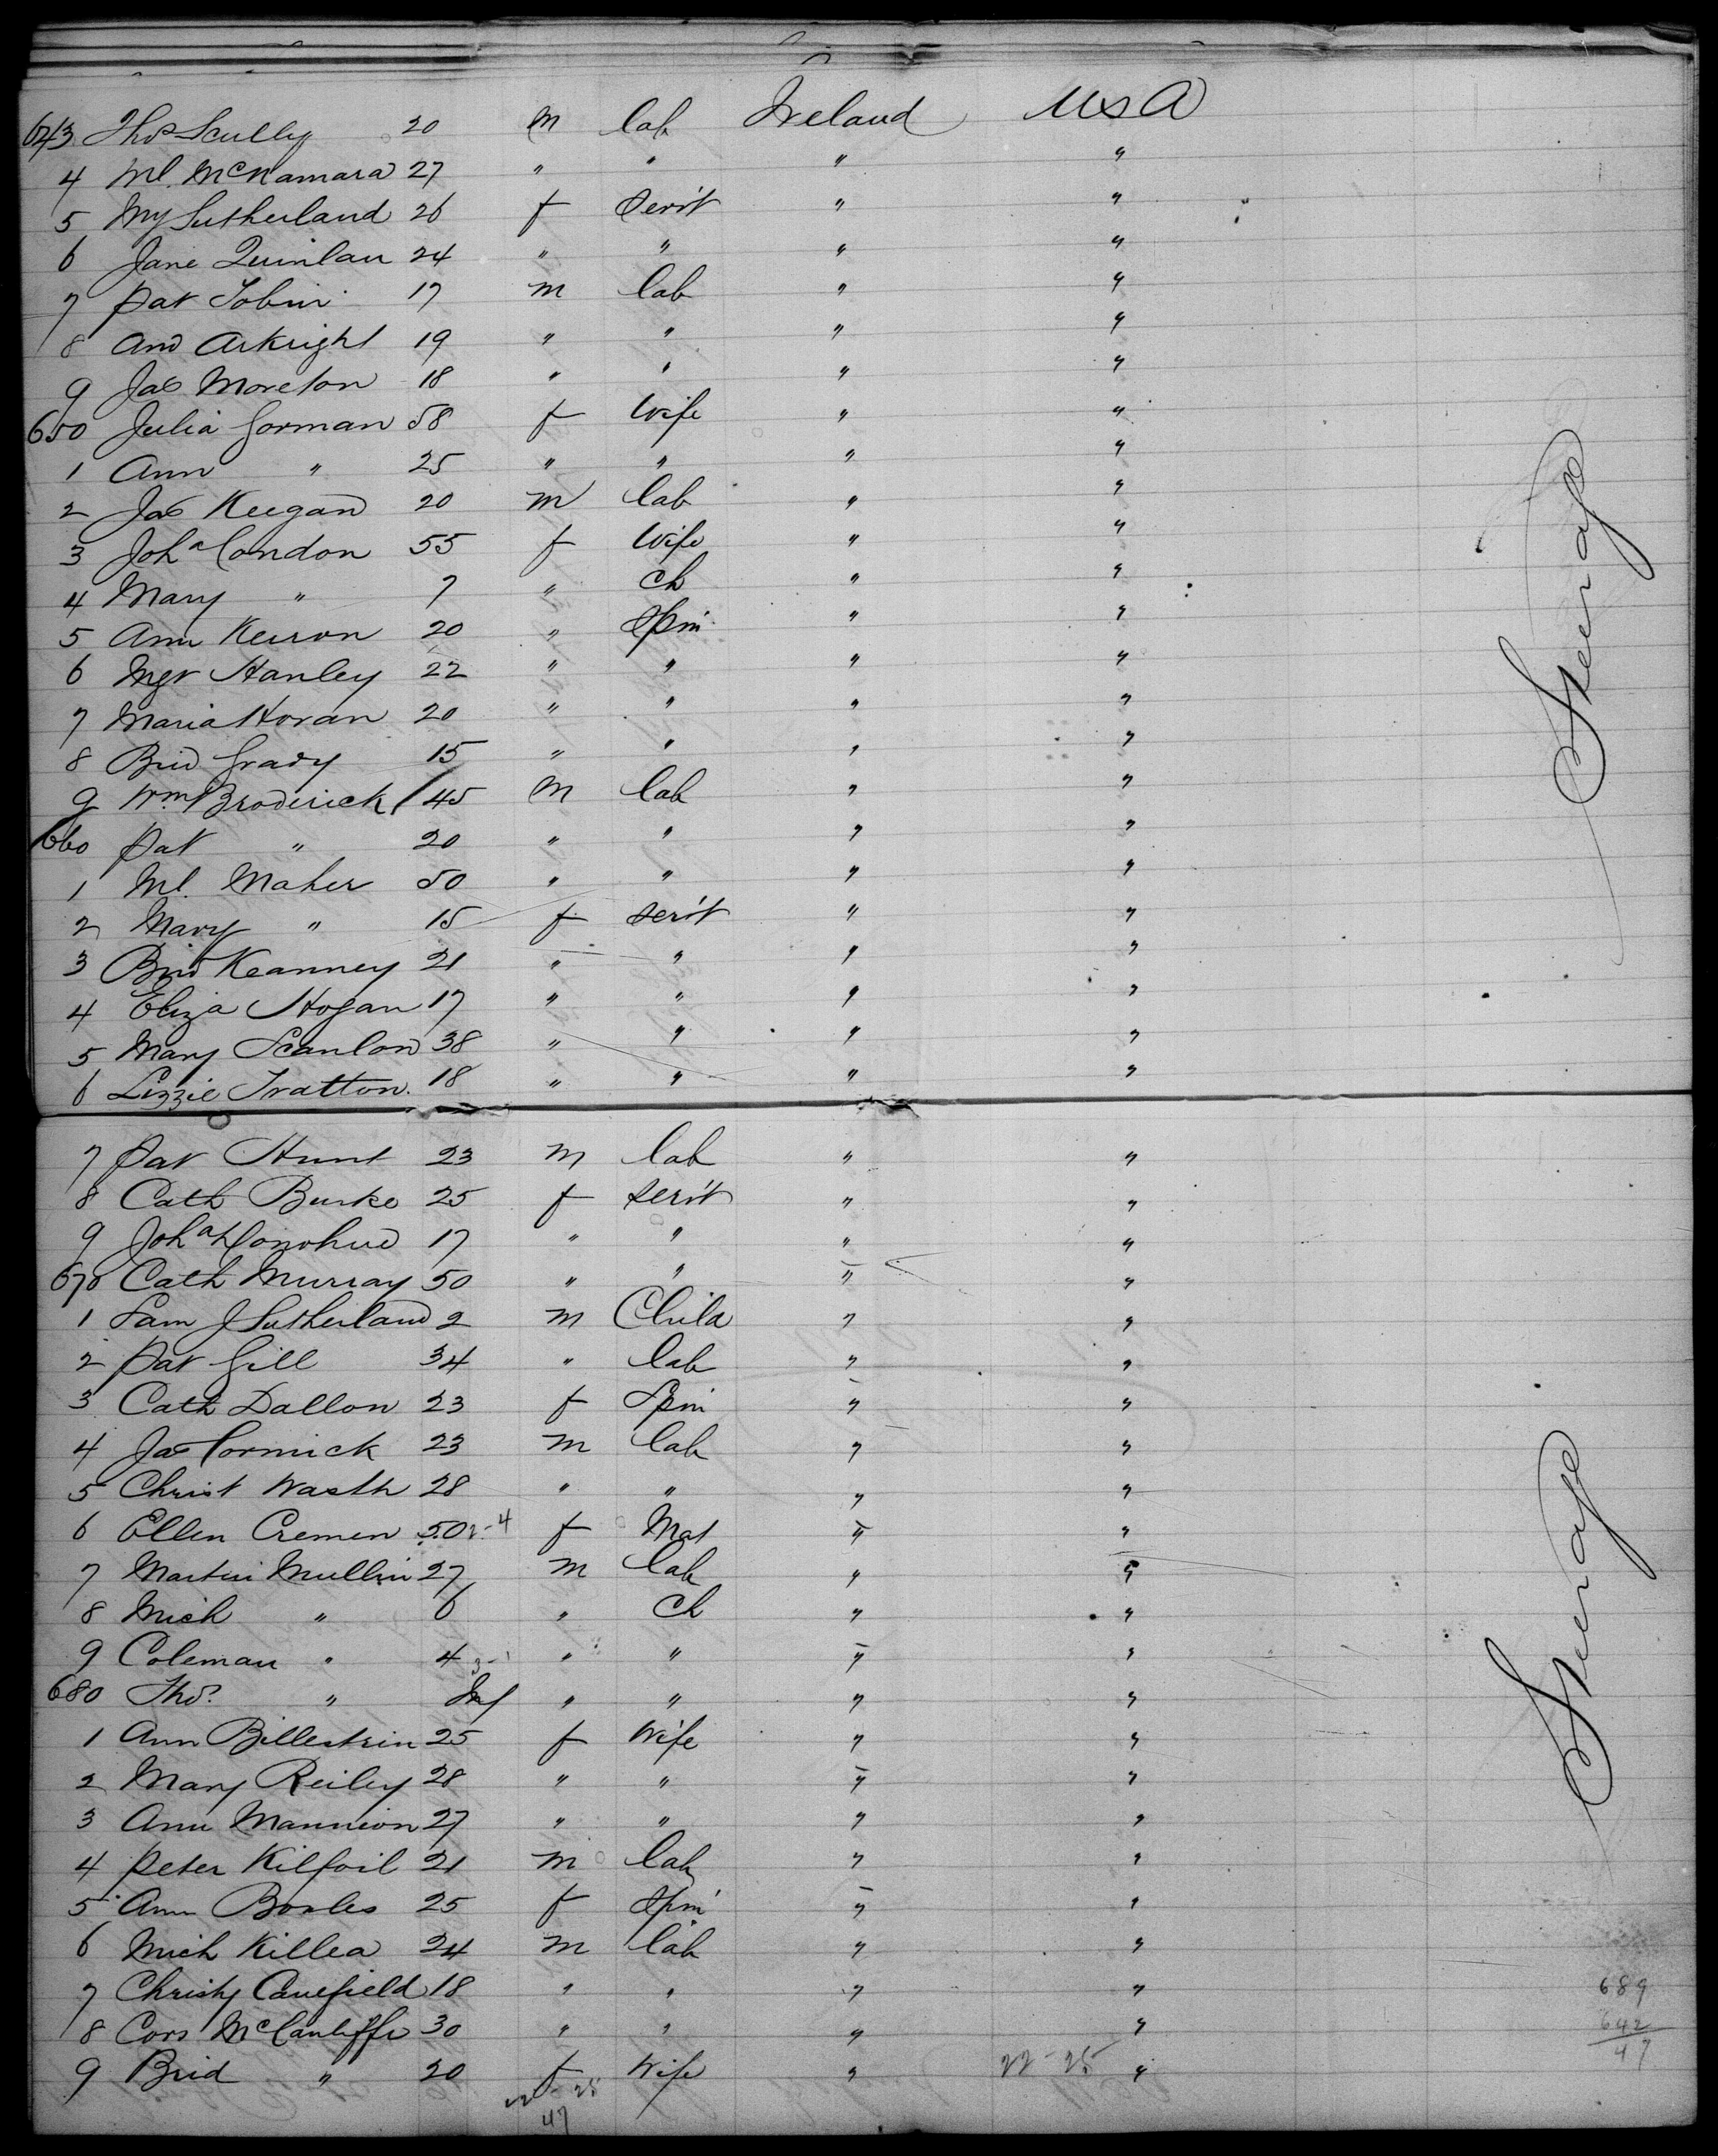 643 Thos Scully 20 m lab Ireland USA
4 Ml. McNamara 27 " " " "
5 My Sutherland 26 f Servt " "
6 Jane Quinlan 24 " " " "
7 Pat Tobin 17 m lab " "
8 And Arkright 19 " " " "
9 Jas Moreton 18 " " " "
650 Julia Gorman 58 f Wife " "
1 Ann " 25 " " " "
2 Jas Keegan 20 m lab " "
3 Joha Condon 55 f Wife " "
4 Mary " 7 " Ch " "
5 Ann Kerron 20 " Spin " "
6 Mgt Hanley 22 " " " "
7 Maria Horan 20 " " " "
8 Brid Grady 15 " " " "
9 Wm Broderick 45 m lab " "
660 Pat " 20 " " " "
1 Ml. Maher 50 " " " "
2 Mary " 15 f servt " "
3 Brid Keanney 21 " " " "
4 Eliza Hogan 17 " " " "
5 Mary Scanlon 38 " " " "
6 Lizzie Tratton. 18 " " " "
Steerage
7 Pat Hunt 23 m lab " "
8 Cath Burke 25 f servt " "
9 Joha Donohue 17 " " " "
670 Cath Murray 50 " " " "
1 Sam J Sutherland 2 m Child " "
2 Pat Gill 34 " lab " "
3 Cath Dallon 23 f Spin " "
4 Jas Cormick 23 m lab " "
5 Christ Wasth 28 " " " "
6 Ellen Cremen 50 2-4 f Mat " "
7 Martin Mullin 27 m lab " "
8 Mich " 6 " Ch " "
9 Coleman " 4 3-1 " " " "
680 Thos. " Inf " " " "
1 Ann Billestrin 25 f Wife " "
2 Mary Reiley 28 " " " "
3 Ann Mannion 27 " " " "
4 Peter Kilfoil 21 m lab " "
5 Ann Boales 25 f Spin " "
6 Mich Killea 24 m lab " "
7 Christy Caulfield 18 " " " "
8 Cors McCauliffe 30 " " " "
9 Brid " 20 f Wife " 22-25 "
22-25
47
Steerage
689
642
47